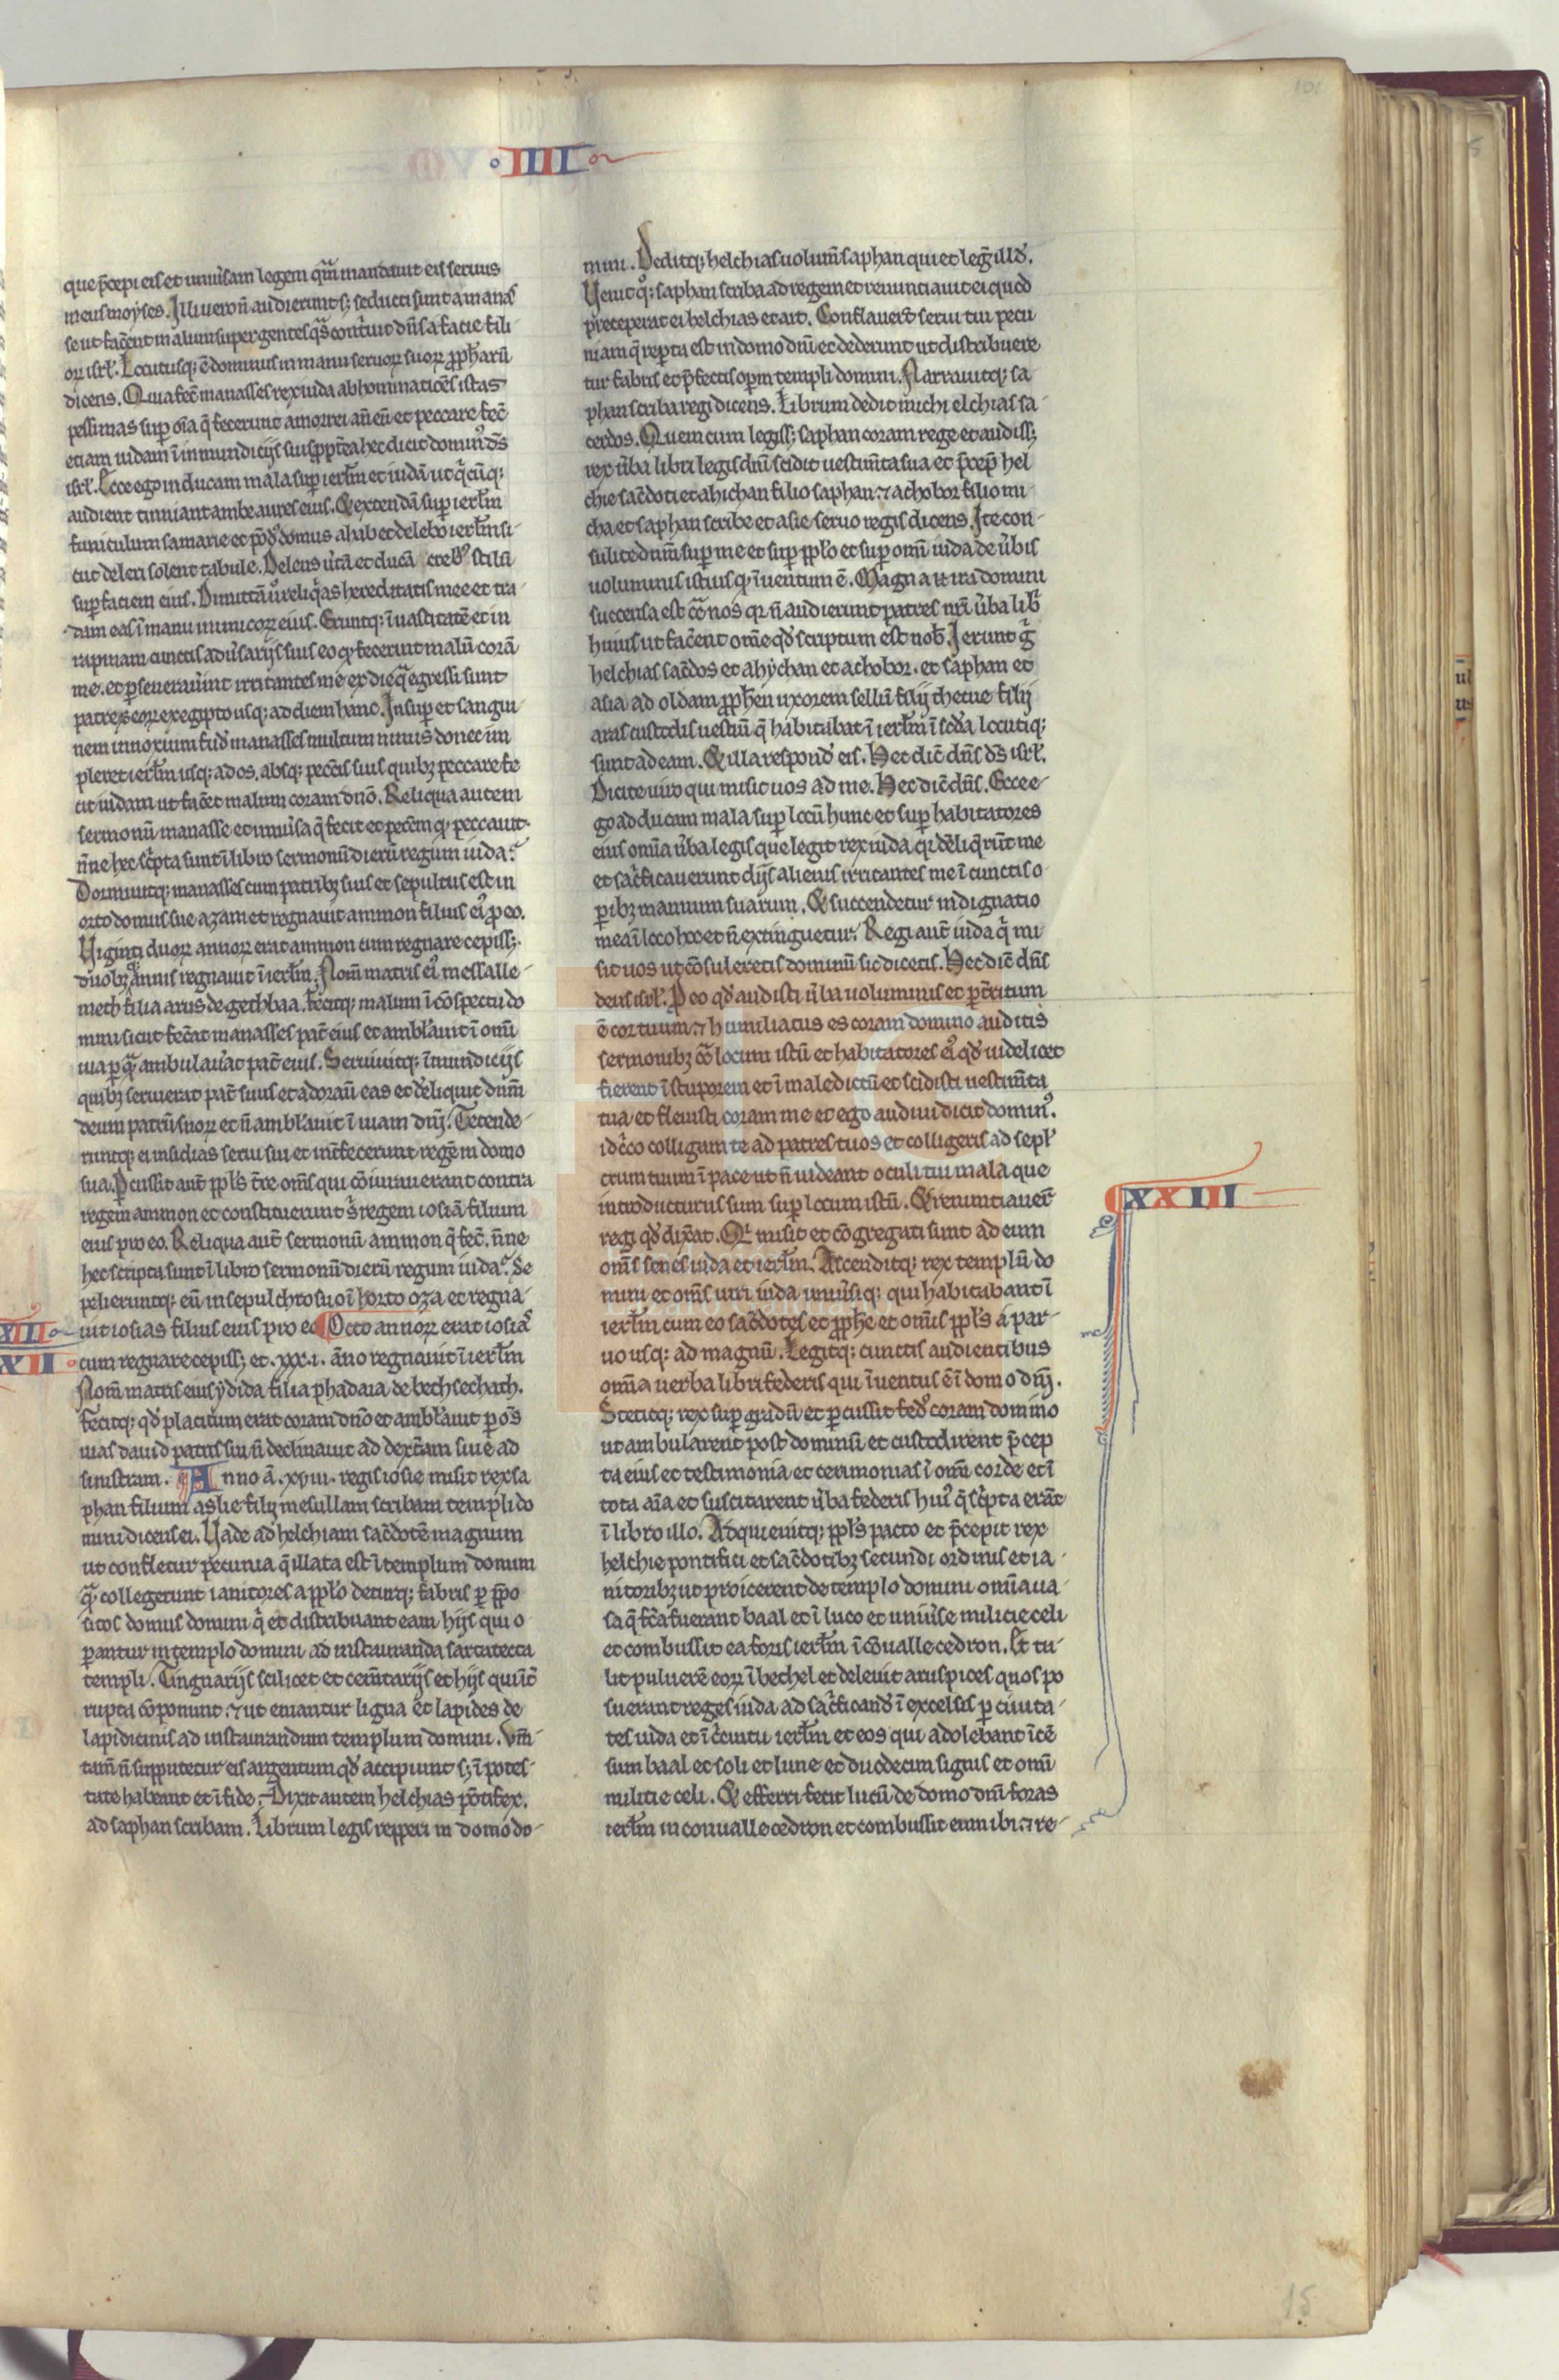 IIII
que p̄cepi eis et uniu̾sam legem q̄m mandauit eis seruus
meus moyses. Illi uero n̄ audierunt sꝫ seducti sunt a manas
se ut fac̄ent malum super gentes q̄s cont͛uit dn̄s a facie fili
oꝝ isrl̄. Locutusqꝫ ē dominus in manu seruoꝝ suoꝝ ꝓph̄arū
dicens. Quia fec̄ manasses rex iuda abhominatiōes istas
pessimas suꝑ oīa q̄ fecerunt amorrei an̄ eū et peccare fec̄
etiam iudam ī inmundicijs suis ꝓpt̄ea hec dicit dominꝰ ds̄
isrl̄. Ecce ego inducam mala suꝑ ierlm̄ et iudā ut q̄cūqꝫ
audierit tinniant ambe aures eius. Et extendā suꝑ ierlm̄
funiculum samarie et pōdꝰ domus ahab et delebo ierlm̄ si
cut deleri solent tabule. Delens u̾tā et ducā crebꝰ stilū
suꝑ faciem eius. Dimittā u̾o reliq̄as hereditatis mee et tra
dam eas ī manu inimicoꝝ eius. Eruntqꝫ ī uastitatē et in
rapinam cunctis adu̾sarijs suis eo ꝙ fecerint malū corā
me. et ꝑseuerau̾int irritantes me ex die q̄ egressi sunt
patres eoꝝ ex egipto usqꝫ ad diem hanc. Insuꝑ et sangui
nem innoxium fud̾ manasses multum nimis donec im
pleret ierlm̄ usqꝫ ad os. absqꝫ pecc̄is suis quibꝫ peccare fe
cit iudam ut fac̄et malum coram dn̄o. Reliqua autem
sermonū manasse et uniu̾sa q̄ fecit et pecc̄m ꝙ peccauit.
n̄ne hec sc͛pta sunt ī libro sermonū dierū regum iuda.
Dormiuitqꝫ manasses cum patribꝫ suis et sepultus est in
orto domus sue azam et regnauit ammon filius eiꝰ ꝓ eo.
Viginti duoꝝ annoꝝ erat ammon cum regnare cepissꝫ.
duobꝫ qꝫ annis regnauit ī ierlm̄. Nom̄ matris eiꝰ messalle
meth filia arus de gethbaa. fecitqꝫ malum ī cōspectu do
mini sicut fec̄at manasses pat̄ eius et ambl̄auit ī omī
uia ꝑ q̄ ambulau̾at pat̄ eius. Seruiuitqꝫ īmundicijs
quibꝫ seruierat pat̄ suus et adorau̾ eas et deliquit dn̄m
deum patrū suoꝝ et n̄ ambl̄auit ī uiam dn̄j. Tetende
runtqꝫ ei insidias serui sui et int̄fecerunt regem in domo
sua. Ꝑcussit aut̄ ppl̄s t̄re om̄s qui cōiurauerant contra
regem ammon et constituerunt s̄ regem iosiā filium
eius pro eo. Reliqua aut̄ sermonū ammon q̄ fec̄. n̄ne
hec scripta sunt ī libro sermonū dierū regum iuda. Se
pelieruntqꝫ eū in sepulchro suo ī horto oza et regna
XIII uit iosias filius eius pro eo Octo annoꝝ erat iosias
XII cum regnare cepissꝫ et .xxx.i. āno regnauit ī ierlm̄
Nom̄ matris eius ydida filia phadaia de bethsechath.
fecitqꝫ qd̾ placitum erat coram dn̄o et ambl̄auit ꝑ oēs
uias dauid patris sui n̄ declinauit ad dext̄am siue ad
sinistram. Anno ā .xviii. regis iosie misit rex sa
phan filium aslie filij mesullam scribam templi do
mini dicens ei. Vade ad helchiam sac̄dotē magnum
ut confletur pecunia q̄ illata est ī templum domini
q̄ collegerunt ianitores a ppl̄o deturqꝫ fabris ꝑ p̄po
sitos domus domini q̄ et distribuant eam hijs qui o
ꝑantur in templo domini ad instauranda sartatecta
templi. Tingnarijs scilicet et cem̄tarijs et hijs qui īt̄
rupta cōponunt. ⁊ ut emantur ligna et lapides de
lapidicinis ad instaurandum templum domini. Vm̄
tam̄ n̄ supputetur eis argentum qd̾ accipiunt sꝫ ī potes
tate habeant et ī fide. Dixit autem helchias pōtifex.
ad saphan scribam. Librum legis repperi in domo do
mini. Deditqꝫ helchias uolum̄ saphan qui et leg̾ illd̾.
Venit qꝫ saphan scriba ad regem et renuntiauit ei quod
preceperat ei helchias et ait. Conflauer̄t serui tui pecu
niam q̄ reperta est in domo dn̄i et dederunt ut distribuere
tur fabris et p̄fectis oꝑm templi domini. Narrauitqꝫ sa
phan scriba regi dicens. Librum dedit michi elchias sa
cerdos. Quem cum legissꝫ saphan coram rege et audissꝫ
rex u̾ba libri legis dn̄i scidit uestim̄ta sua et p̄cep̄ hel
chie sac̄doti et ahichan filio saphan ⁊ achobor filio mi
cha et saphan scribe et asie seruo regis dicens. Ite con
sulite dn̄m suꝑ me et suꝑ ppl̄o et suꝑ omī iuda de u̾bis
uoluminis istius qꝫ īuentum ē. Magna ira domini
succensa est cōt nos qꝛ n̄ audierunt patres nr̄i u̾ba lib͛
huius ut fac̄ent om̄e qd̾ scriptum est nob̄. Ierunt g̾
helchias sac̄dos et ahychan et achobor. et saphan et
asia ad oldam ꝓph̄en uxorem sellū filij thecue filij
aras custodis uestiū q̄ habitabat ī ierlm̄ ī scd̄a locutiqꝫ
sunt ad eam. Et illa respond̾ eis. Hec dic̄ dn̄s ds̄ isrl̄.
Dicite uiro qui misit uos ad me. Hec dic̄ dn̄s. Ecce e
go adducam mala suꝑ locū hunc et suꝑ habitatores
eius omīa u̾ba legis que legit rex iuda qꝛ deliq̄rūt me
et sac̄ficauerunt dijs alienis irritantes me ī cunctis o
ꝑibꝫ manuum suarum. Et succendetur indignatio
mea ī loco hoc et n̄ extinguetur. Regi aut̄ iuda q͛ mi
sit uos ut cōsuleretis dominū sic dicetis. Hec dic̄ dn̄s
deus isrl̄. Ꝓ eo qd̾ audisti u̾ba uoluminis et ꝑt̄ritum
ē cor tuum ⁊ humiliatus es coram domino auditis
sermonibꝫ cōt locum istū et habitatores eiꝰ qd̾ uidelicet
fierent ī stuporem et ī maledictū et scidisti uestim̄ta
tua et fleuisti coram me et ego audiui dicit dominꝰ.
idc̄co colligam te ad patres tuos et colligeris ad sepl̄
crum tuum ī pace ut n̄ uideant oculi tui mala que
introducturus sum suꝑ locum istū. Et renuntiauer̄
XXIII
regi qd̾ dix̄at. Qi misit et cōgregati sunt ad eum
om̄s senes iuda et ierlm̄. Ascenditqꝫ rex templū do
mini et om̄s uiri iuda uniu̾siqꝫ qui habitabant ī
ierlm̄ cum eo sac̄dotes et ꝓph̄e et om̄is ppl̄s a par
uo usqꝫ ad magnū. Legitqꝫ cunctis audientibus
om̄a uerba libri federis qui īuentus ē ī domo dn̄j.
Stetitqꝫ rex suꝑ gradū et ꝑcussit fed̾ coram domino
ut ambularent post dominū et custodirent p̄cep
ta eius et testimonia et cerimonias ī omī corde et ī
tota aīa et suscitarent u̾ba federis huiꝰ q̄ sc͛pta erāt
ī libro illo. Adquieuitqꝫ ppl̄s pacto et p̄cepit rex
helchie pontifici et sac̄dotibꝫ secundi ordinis et ia
nitoribꝫ ut proicerent de templo domini omīa ua
sa q̄ fc̄a fuerant baal et ī luco et uniu̾se milicie celi
et combussit ea foris ierlm̄ ī cōualle cedron. Et tu
lit puluerē eoꝝ ī bethel et deleuit aruspices quos po
suerant reges iuda ad sac̄ficand̾ ī excelsis ꝑ ciuita
tes iuda et ī c͛cuitu ierlm̄ et eos qui adolebant īcē
sum baal et soli et lune et duodecim signis et omī
militie celi. Et efferri fecit lucū de domo dn̄i foras
ierlm̄ in conualle cedron et combussit eum ibi ⁊ re
15